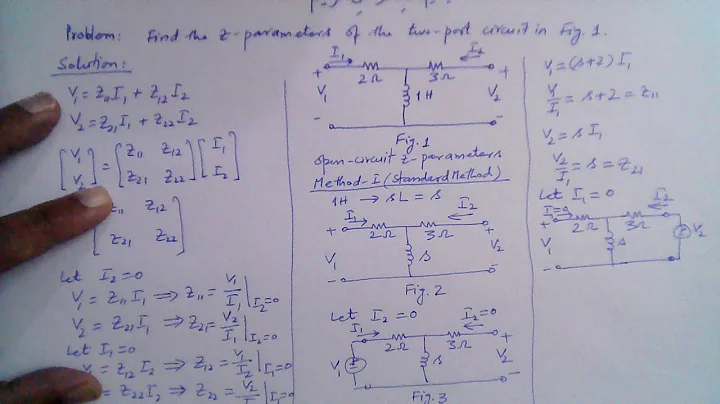 Problem: Find the z-parameters of the two-port circuit in Fig. 1.
Solution:
V₁ = Z₁₁I₁ + Z₁₂I₂
V₂ = Z₂₁I₁ + Z₂₂I₂
[V₁ V₂] = [Z₁₁ Z₁₂ Z₂₁ Z₂₂] [I₁ I₂]
Z₁₂
Z₂₁ Z₂₂
Let I₂ = 0
V₁ = Z₁₁I₁ ⟹ Z₁₁ = V₁/I₁ |I₂=0
V₂ = Z₂₁I₁ ⟹ Z₂₁ = V₂/I₁ |I₂=0
Let I₁ = 0
V₁ = Z₁₂I₂ ⟹ Z₁₂ = V₁/I₂ |I₁=0
= Z₂₂I₂ ⟹ Z₂₂ = V₂/I |I₁=0
I₁ I₂
+ 2Ω 3Ω +
V₁ 1H V₂
- -
Fig. 1
open-circuit z-parameters
Method-I (Standard Method)
1H → sL = s
I₁ I₂
+ 2Ω 3Ω +
V₁ s V₂
- -
Fig. 2
Let I₂ = 0
I₁ I₂=0
2Ω 3Ω +
V₁ s V₂
-
Fig. 3
V₁ = (s+2) I₁
V₁/I₁ = s+2 = Z₁₁
V₂ = s I₁
V₂/I₁ = s = Z₂₁
Let I₁ = 0
I₁=0 I₂
+ 2Ω 3Ω
V₁ s V₂
-